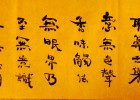 意無色聲
香味觸法
無眼界乃
至無意識